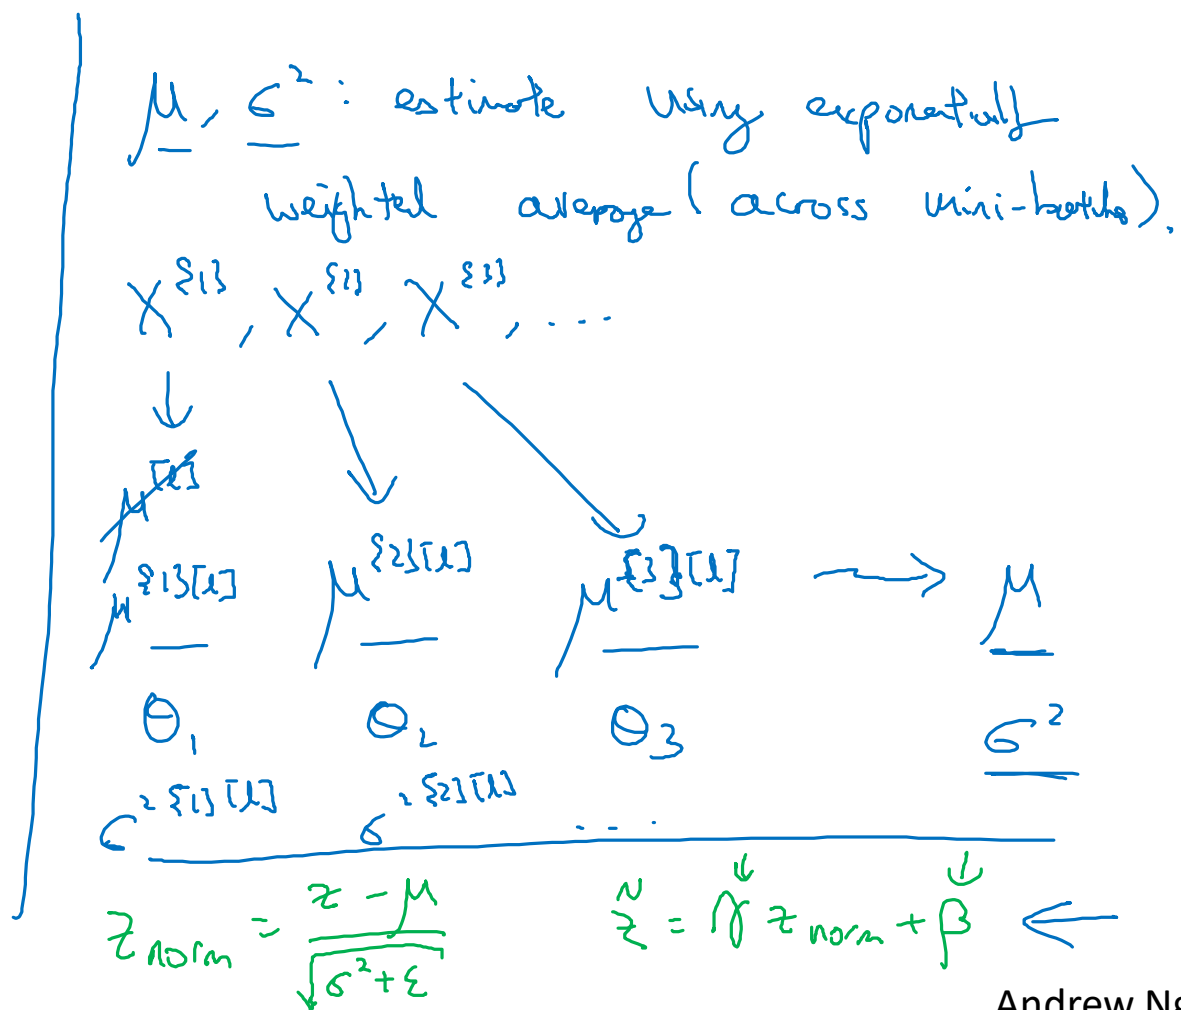 μ, σ² : estimate using exponentially
weighted average (across mini-batches).
X^{1}, X^{2}, X^{3}, ....
μ^[l]
μ^{1}[l] μ^{2}[l] μ^{3}[l] → μ
θ₁ θ₂ θ₃ σ²
σ²^{1}[l] σ²^{2}[l] ...
z_norm = (z - μ) / √(σ²+ε) z̃ = γ z_norm + β
Andrew Ng